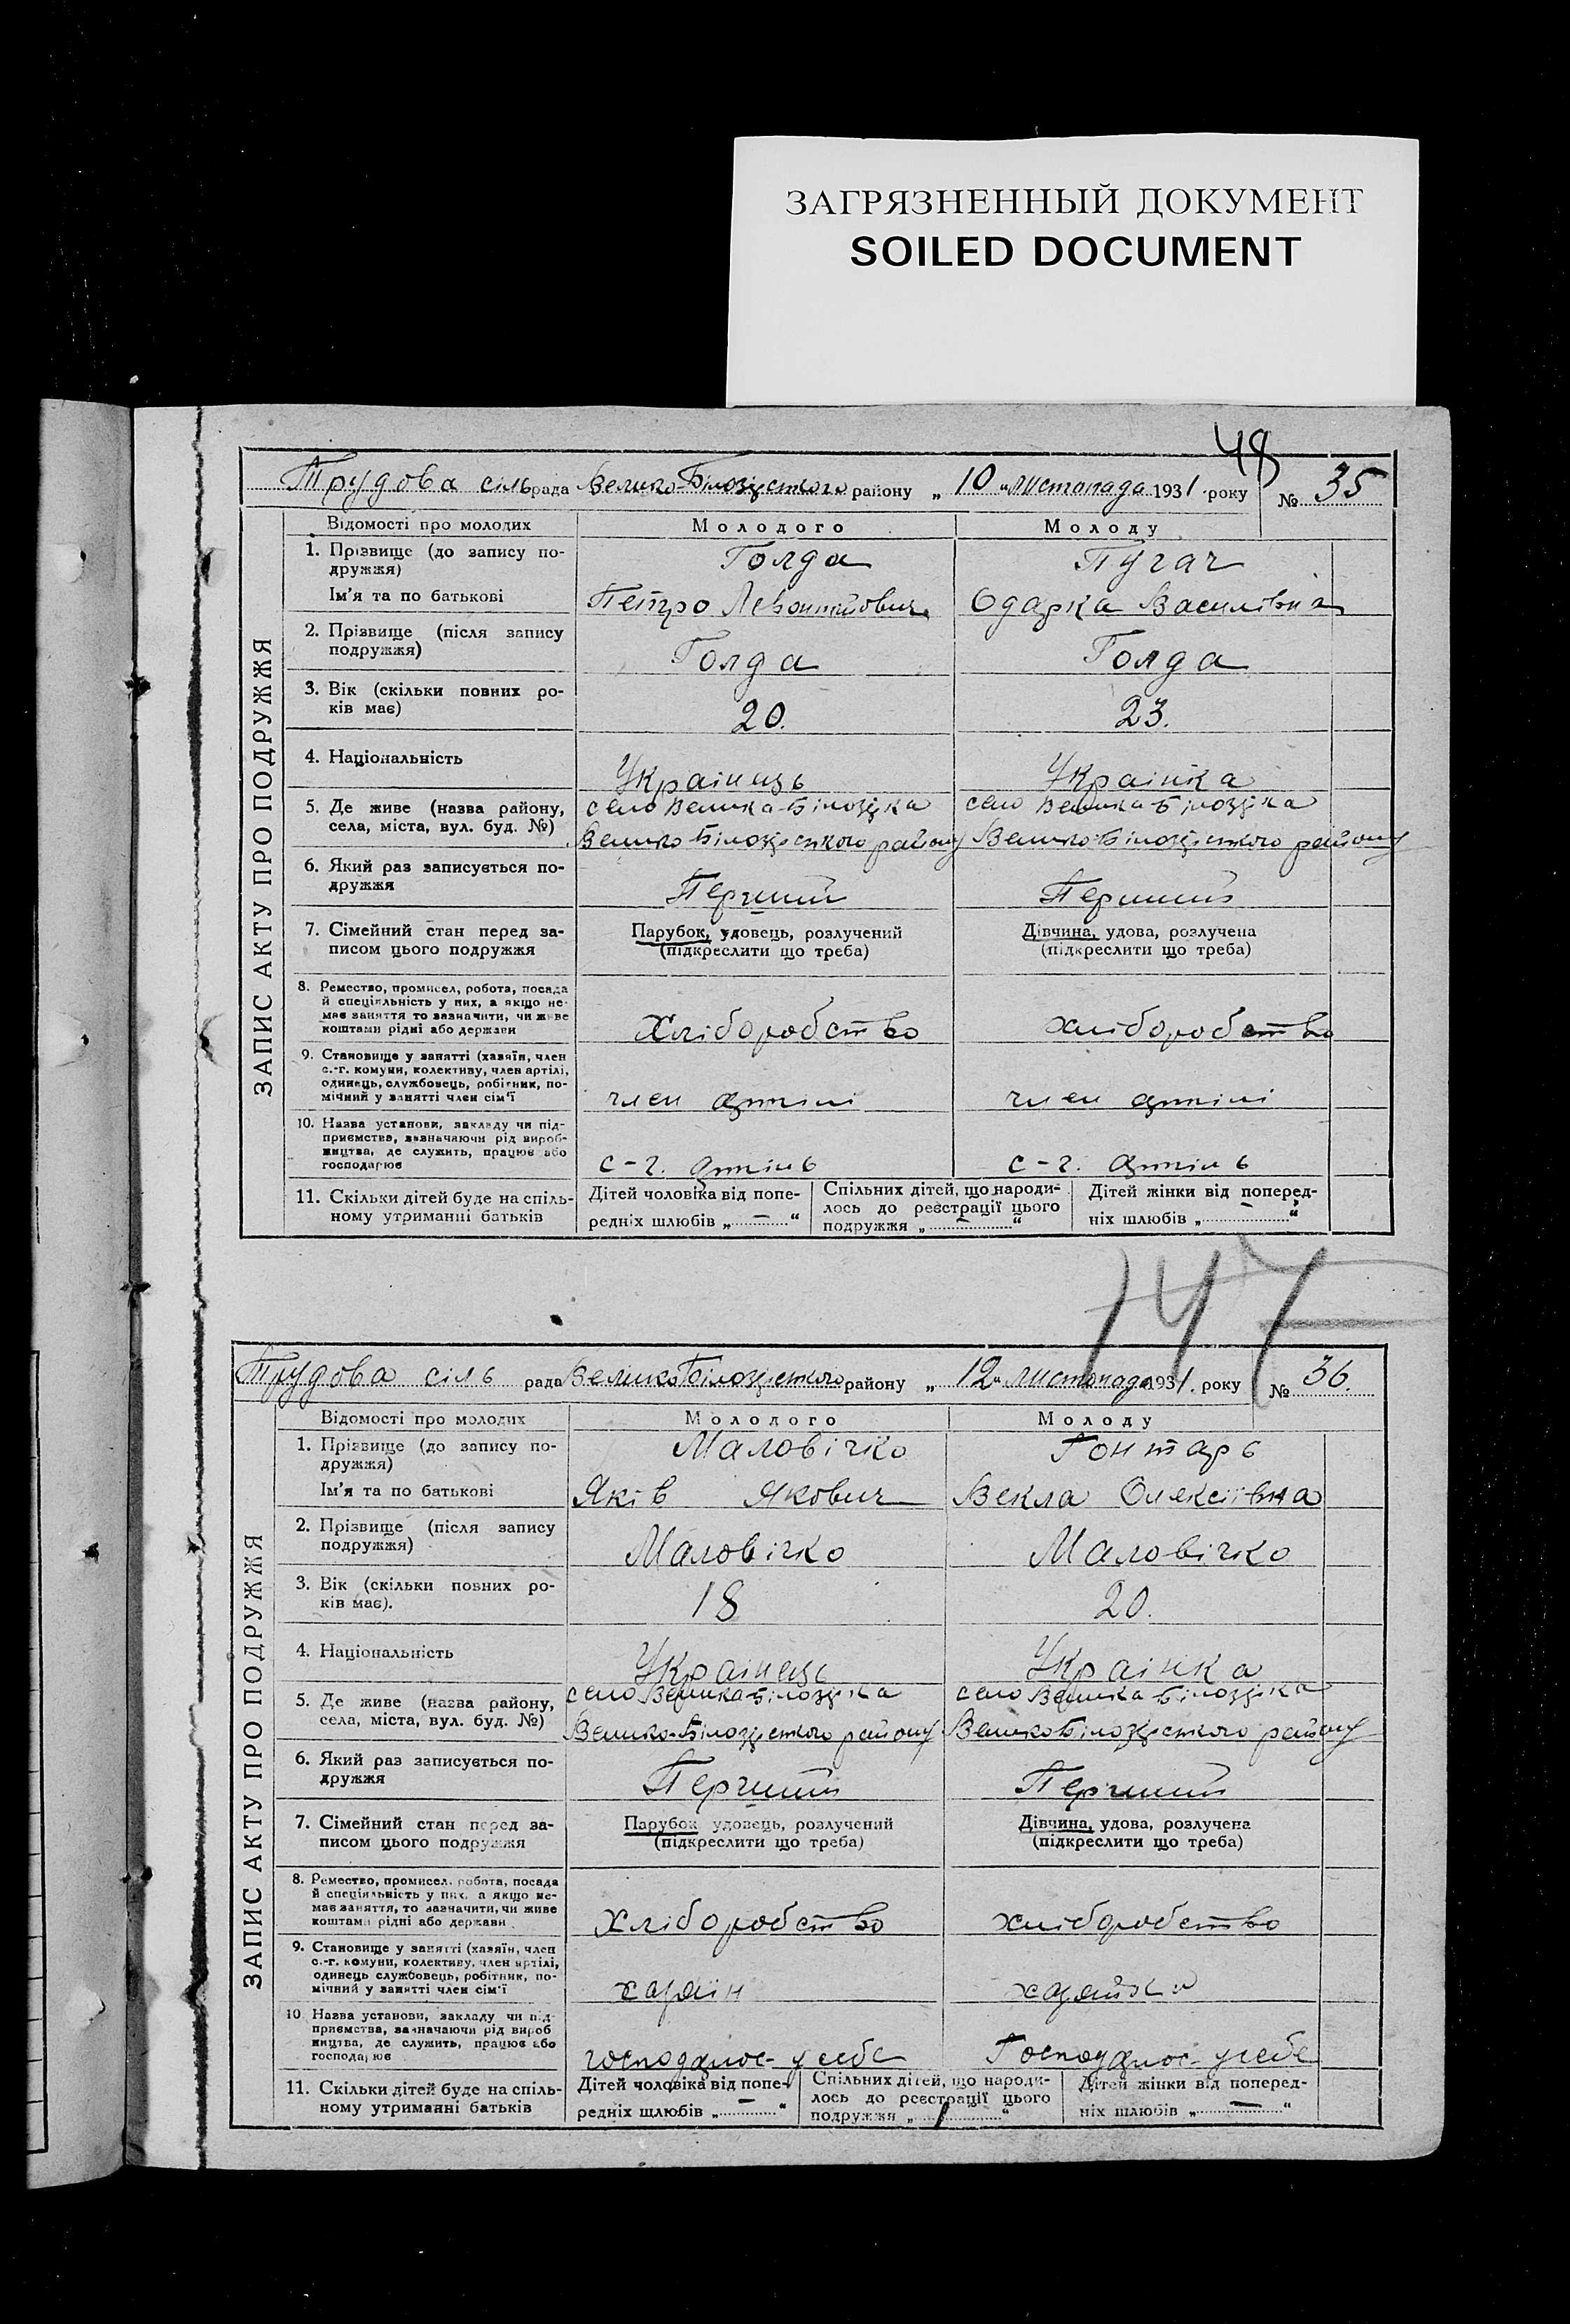 ЗАГРЯЗНЕННЫЙ ДОКУМЕНТ
SOILED DOCUMENT
48
Трудова сільрада Велико-Білозірського району „10" листопада 1931 року № 35
ЗАПИС АКТУ ПРО ПОДРУЖЖЯ
Відомості про молодих Молодого Молоду
1. Прізвище (до запису по- Голда Пугач
дружжя)
Ім'я та по батькові Петро Левонтійович Одарка Василівна
2. Прізвище (після запису
подружжя) Голда Голда
3. Вік (скільки повних ро-
ків має) 20. 23.
4. Національність Украінець Украінка
5. Де живе (назва району, село Велика-Білозірка село Велика-Білозірка
села, міста, вул. буд. №) Велико-Білозірського району Велико-Білозірського району
6. Який раз записується по-
дружжя Перший Перший
7. Сімейний стан перед за- Парубок, удовець, розлучений Дівчина, удова, розлучена
писом цього подружжя (підкреслити що треба) (підкреслити що треба)
8. Ремество, промисел, робота, посада
й спеціяльність у них, а якщо не-
має заняття то зазначити, чи живе
коштами рідні або держави Хліборобство хліборобство
9. Становище у занятті (хазяїн, член
с.-г. комуни, колективу, член артілі,
одинець, службовець, робітник, по-
мічний у занятті член сім'ї член артілі член артілі
10. Назва установи, закладу чи під-
приємства, зазначаючи рід вироб-
ництва, де служить, працює або
господарює с-г. артіль с-г. артіль
11. Скільки дітей буде на спіль- Дітей чоловіка від попе- Спільних дітей, що народи- Дітей жінки від поперед-
ному утриманні батьків редніх шлюбів „—" лось до реєстрації цього ніх шлюбів „—"
подружжя „—"
Трудова сіль рада Велико-Білозірського району „12" листопада 1931. року № 36.
ЗАПИС АКТУ ПРО ПОДРУЖЖЯ
Відомості про молодих Молодого Молоду
1. Прізвище (до запису по- Маловічко Гонтарь
дружжя)
Ім'я та по батькові Яків Якович Векла Олексіївна
2. Прізвище (після запису
подружжя) Маловічко Маловічко
3. Вік (скільки повних ро-
ків має). 18 20.
4. Національність Украінець Украінка
5. Де живе (назва району, село Велика-Білозірка село Велика-Білозірка
села, міста, вул. буд. №) Велико-Білозірського району Велико-Білозірського району
6. Який раз записується по-
дружжя Перший Перший
7. Сімейний стан перед за- Парубок удовець, розлучений Дівчина, удова, розлучена
писом цього подружжя (підкреслити що треба) (підкреслити що треба)
8. Ремество, промисел, робота, посада
й спеціяльність у них, а якщо не-
має заняття, то зазначити, чи живе
коштами рідні або держави Хліборобство хліборобство
9. Становище у занятті (хазяїн, член
с.-г. комуни, колективу, член артілі,
одинець службовець, робітник, по-
мічний у занятті член сім'ї хазяін хазяйка
10. Назва установи, закладу чи під-
приємства, зазначаючи рід вироб
ництва, де служить, працює або
господарює господарює у себе Господарює у себе
11. Скільки дітей буде на спіль- Дітей чоловіка від попе- Спільних дітей, що народи- Дітей жінки від поперед-
ному утриманні батьків редніх щлюбів „—" лось до реєстрації цього ніх шлюбів „—"
подружжя „ "